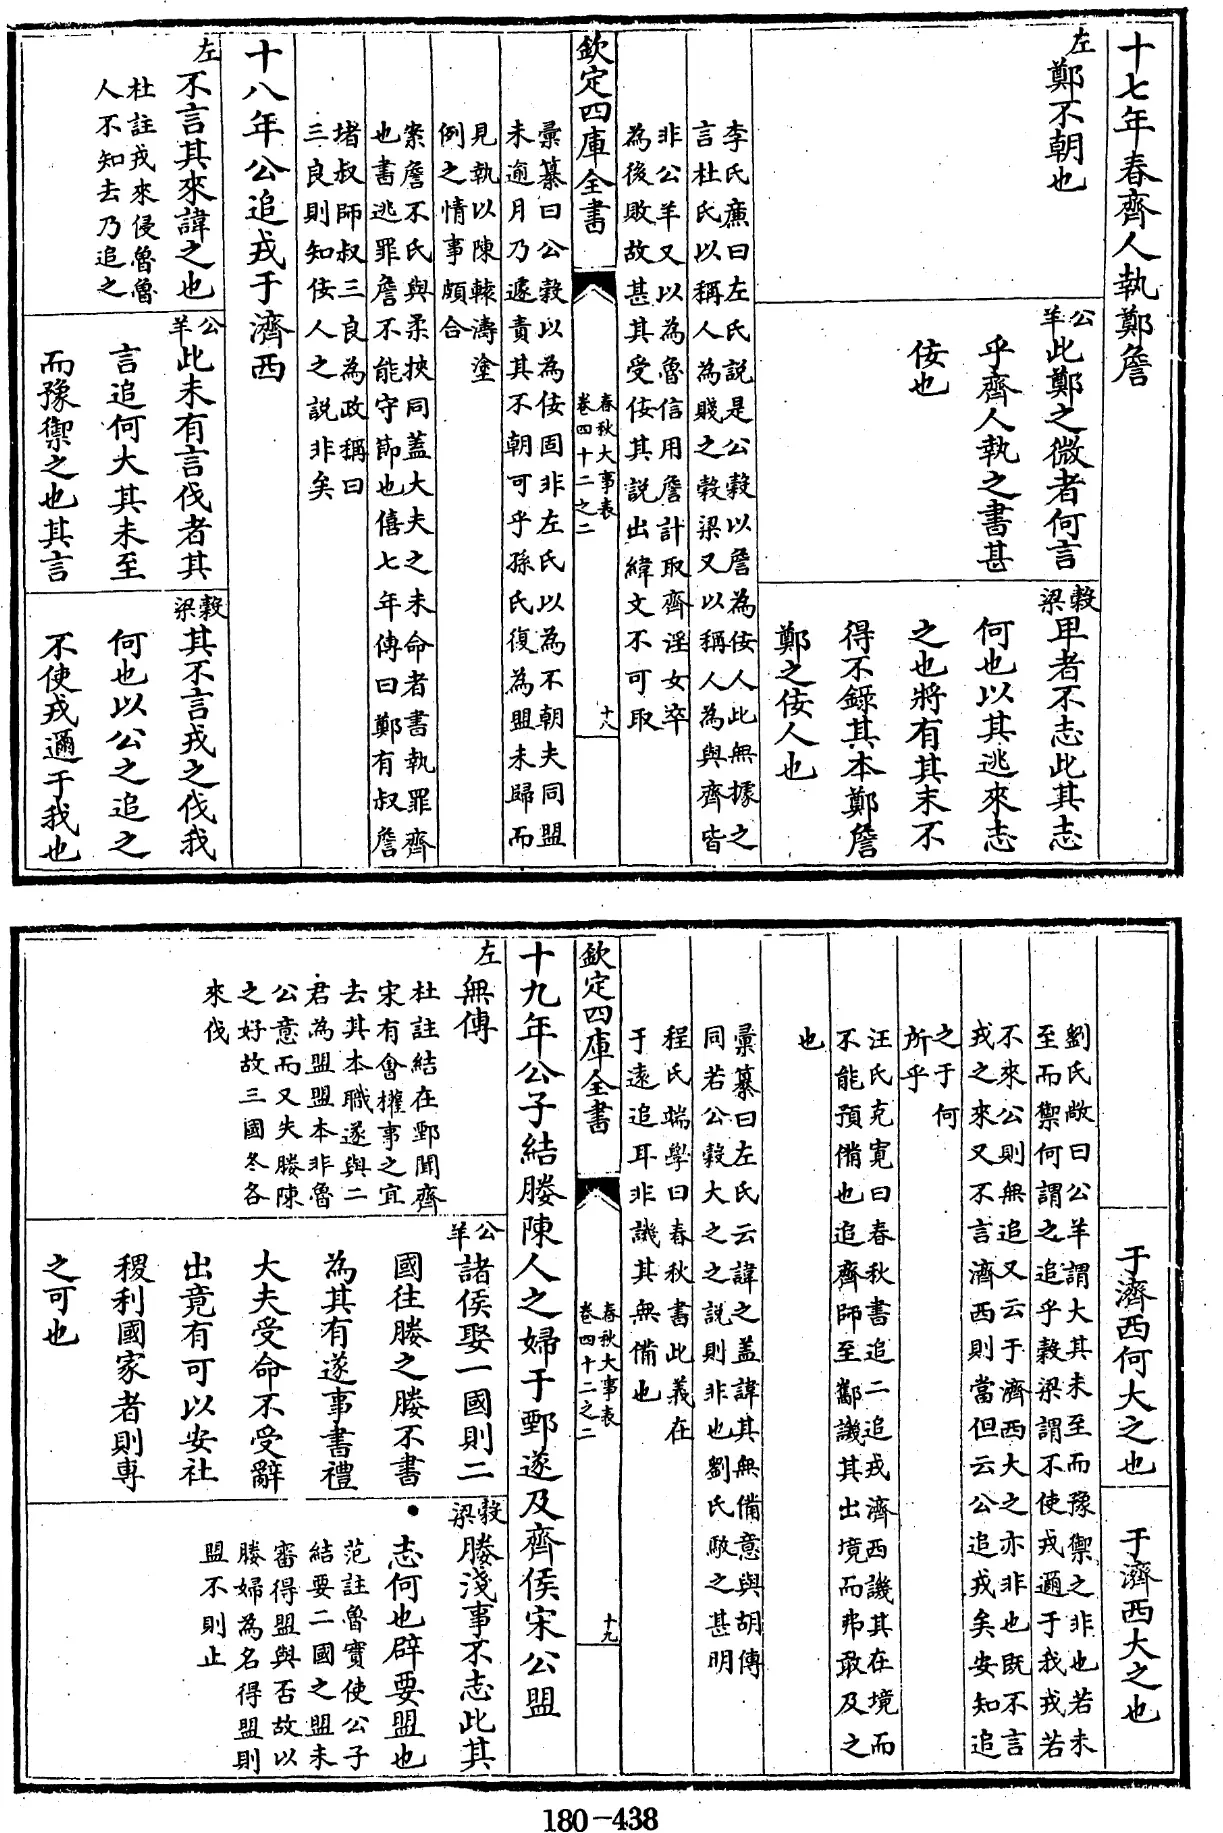 十七年春齊人執鄭詹
左
鄭不朝也
公羊
此鄭之微者何言
乎齊人執之書甚
佞也
穀梁
甲者不志此其志
何也以其逃來志
之也將有其末不
得不錄其本鄭詹
鄭之佞人也
李氏廉曰左氏說是公穀以詹為佞人此無據之
言杜氏以稱人為賤之穀梁又以稱人為與齊皆
非公羊又以為魯信用詹計取齊淫女卒
為後敗故甚其受佞其說出緯文不可取
欽定四庫全書
春秋大事表
卷四十二之二
十八
彙纂曰公穀以為佞固非左氏以為不朝夫同盟
未逾月乃遽責其不朝可乎孫氏復為盟未歸而
見執以陳轅濤塗
例之情事頗合
案詹不氏與柔挾同蓋大夫之未命者書執罪齊
也書逃罪詹不能守節也僖七年傳曰鄭有叔詹
堵叔師叔三良為政稱曰
三良則知佞人之說非矣
十八年公追戎于濟西
左
不言其來諱之也
杜註戎來侵魯魯
人不知去乃追之
公羊
此未有言伐者其
言追何大其未至
而豫禦之也其言
穀梁
其不言戎之伐我
何也以公之追之
不使戎邇于我也
于濟西何大之也
于濟西大之也
劉氏敞曰公羊謂大其未至而豫禦之非也若未
至而禦何謂之追乎穀梁謂不使戎邇于我戎若
不來公則無追又云于濟西大之亦非也既不言
戎之來又不言濟西則當但云公追戎矣安知追
之于何
所乎
汪氏克寬曰春秋書追二追戎濟西譏其在境而
不能預備也追齊師至酅譏其出境而弗敢及之
也
彙纂曰左氏云諱之蓋諱其無備意與胡傳
同若公穀大之之說則非也劉氏敞之甚明
程氏端學曰春秋書此義在
于遠追耳非譏其無備也
欽定四庫全書
春秋大事表
卷四十二之二
十九
十九年公子結媵陳人之婦于鄄遂及齊侯宋公盟
左
無傳
杜註結在鄄聞齊
宋有會權事之宜
去其本職遂與二
君為盟盟本非魯
公意而又失媵陳
之好故三國冬各
來伐
公羊
諸侯娶一國則二
國往媵之媵不書
為其有遂事書禮
大夫受命不受辭
出竟有可以安社
稷利國家者則專
之可也
穀梁
媵淺事不志此其
志何也辟要盟也
范註魯實使公子
結要二國之盟未
審得盟與否故以
媵婦為名得盟則
盟不則止
180-438